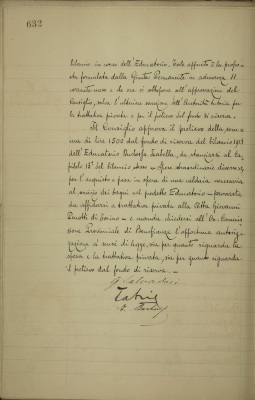 632
bilancio in corso dell'Educatorio. Tale appunto è la propo-
sta formulata dalla Giunta Permanente in adunanza 11
corrente mese e che ora si sottopone all'approvazione del
Consiglio, salva l'ulteriore sanzione dell'Autorità tutoria per
la trattativa privata e per il prelievo dal fondo di riserva.
Il Consiglio approva il prelievo della som-
ma di lire 1500 dal fondo di riserva del bilancio 1913
dell'Educatorio Duchessa Isabella, da stanziarsi al Ca-
pitolo 18° del bilancio stesso - spese straordinarie diverse,
per l'acquisto e posa in opera di una caldaia necessaria
al servizio dei bagni nel predetto Educatorio - provvista
da affidarsi a trattativa privata alla Ditta Giovanni
di Torino - e manda chiedersi all'On. Commis-
sione Provinciale di Beneficenza l'opportuna autoriz-
zazione ai sensi di legge, sia per quanto riguarda la
spesa e la trattativa privata, sia per quanto riguarda
il prelievo dal fondo di riserva. -